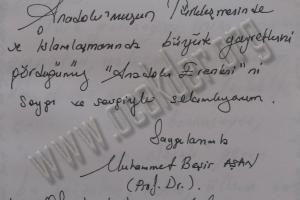 Anadolu'muzun Türkleşmesinde
ve İslamlaşmasında büyük gayretlerini
gördüğümüz "Anadolu Erenleri"ni
Saygı ve sevgiyle selamlıyorum.
Saygılarımla
Muhammet Beşir AŞAN
(Prof. Dr.).